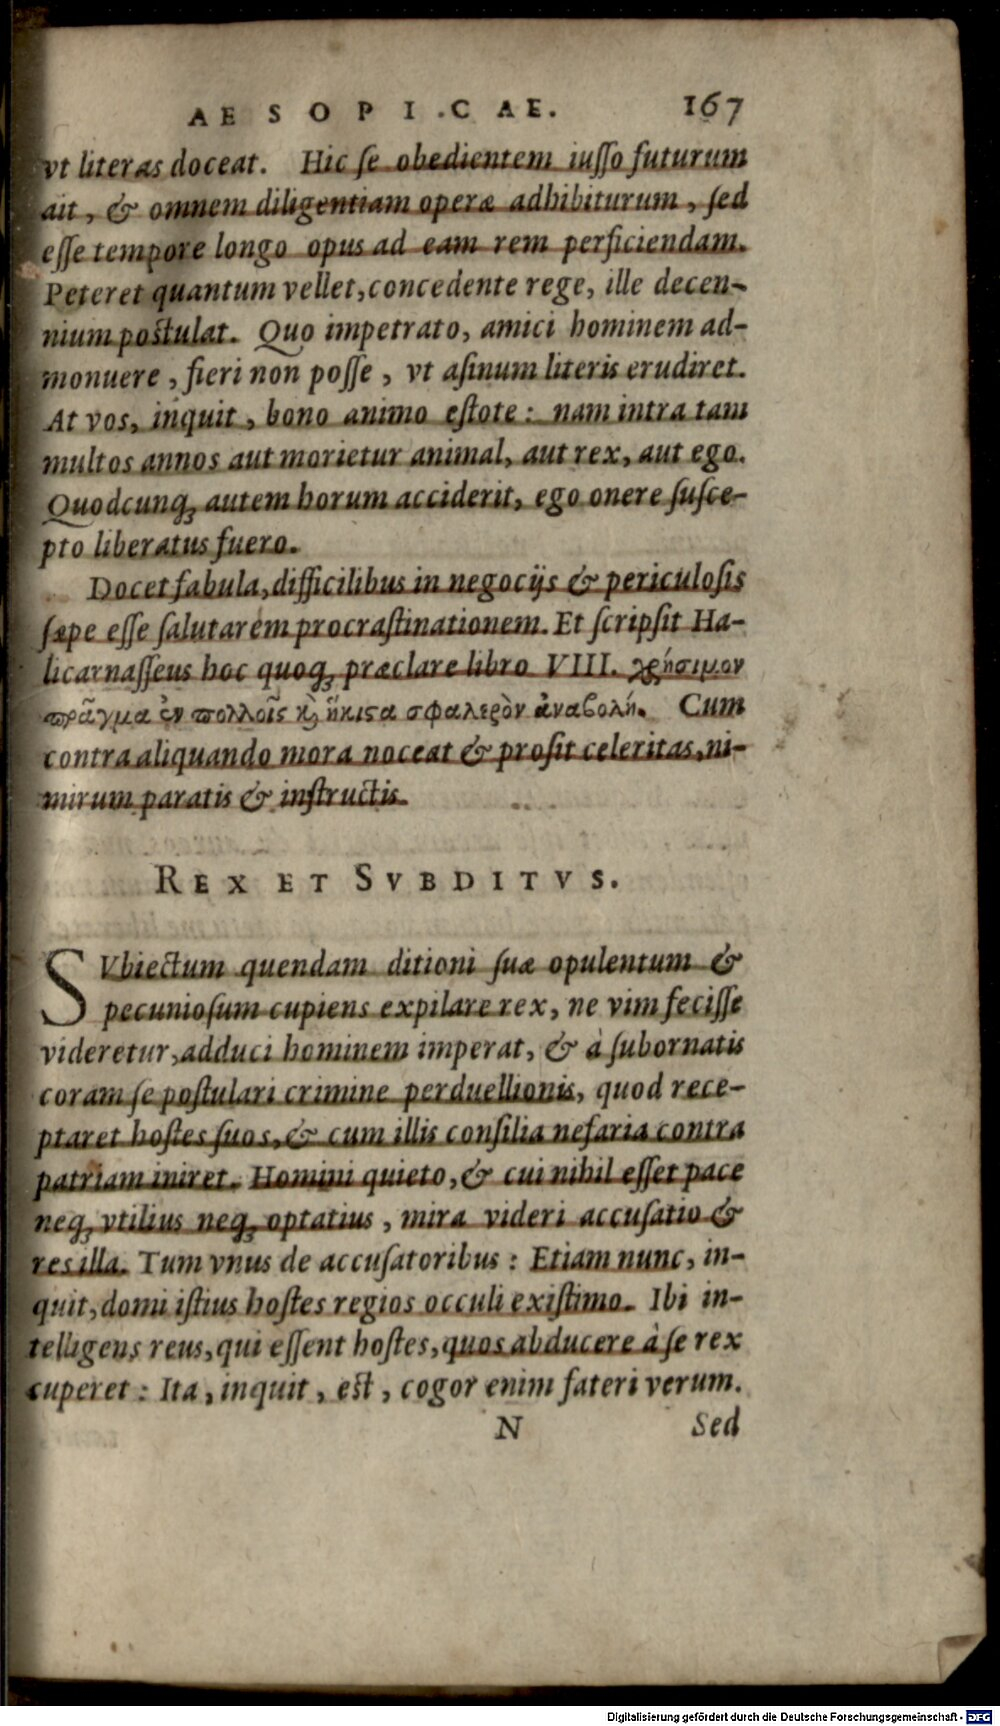 AESOPICAE. 167
vt literas doceat. Hic se obedientem iusso futurum
ait, & omnem diligentiam operæ adhibiturum, sed
esse tempore longo opus ad eam rem perficiendam.
Peteret quantum vellet, concedente rege, ille decen-
nium postulat. Quo impetrato, amici hominem ad-
monuere, fieri non posse, vt asinum literis erudiret.
At vos, inquit, bono animo estote: nam intra tam
multos annos aut morietur animal, aut rex, aut ego.
Quodcunq; autem horum acciderit, ego onere susce-
pto liberatus fuero.
Docet fabula, difficilibus in negocijs & periculosis
sæpe esse salutarem procrastinationem. Et scripsit Ha-
licarnasseus hoc quoq; præclare libro VIII. χρήσιμον
πρᾶγμα ἐν πολλοῖς κ̀ ἥκιστα σφαλερὸν ἀναβολή. Cum
contra aliquando mora noceat & prosit celeritas, ni-
mirum paratis & instructis.
REX ET SVBDITVS.
SVbiectum quendam ditioni suæ opulentum &
pecuniosum cupiens expilare rex, ne vim fecisse
videretur, adduci hominem imperat, & à subornatis
coram se postulari crimine perduellionis, quod rece-
ptaret hostes suos, & cum illis consilia nefaria contra
patriam iniret. Homini quieto, & cui nihil esset pace
neq; vtilius neq; optatius, mira videri accusatio &
res illa. Tum vnus de accusatoribus: Etiam nunc, in-
quit, domi istius hostes regios occuli existimo. Ibi in-
telligens reus, qui essent hostes, quos abducere à se rex
cuperet: Ita, inquit, est, cogor enim fateri verum.
N Sed
Digitalisierung gefördert durch die Deutsche Forschungsgemeinschaft - DFG